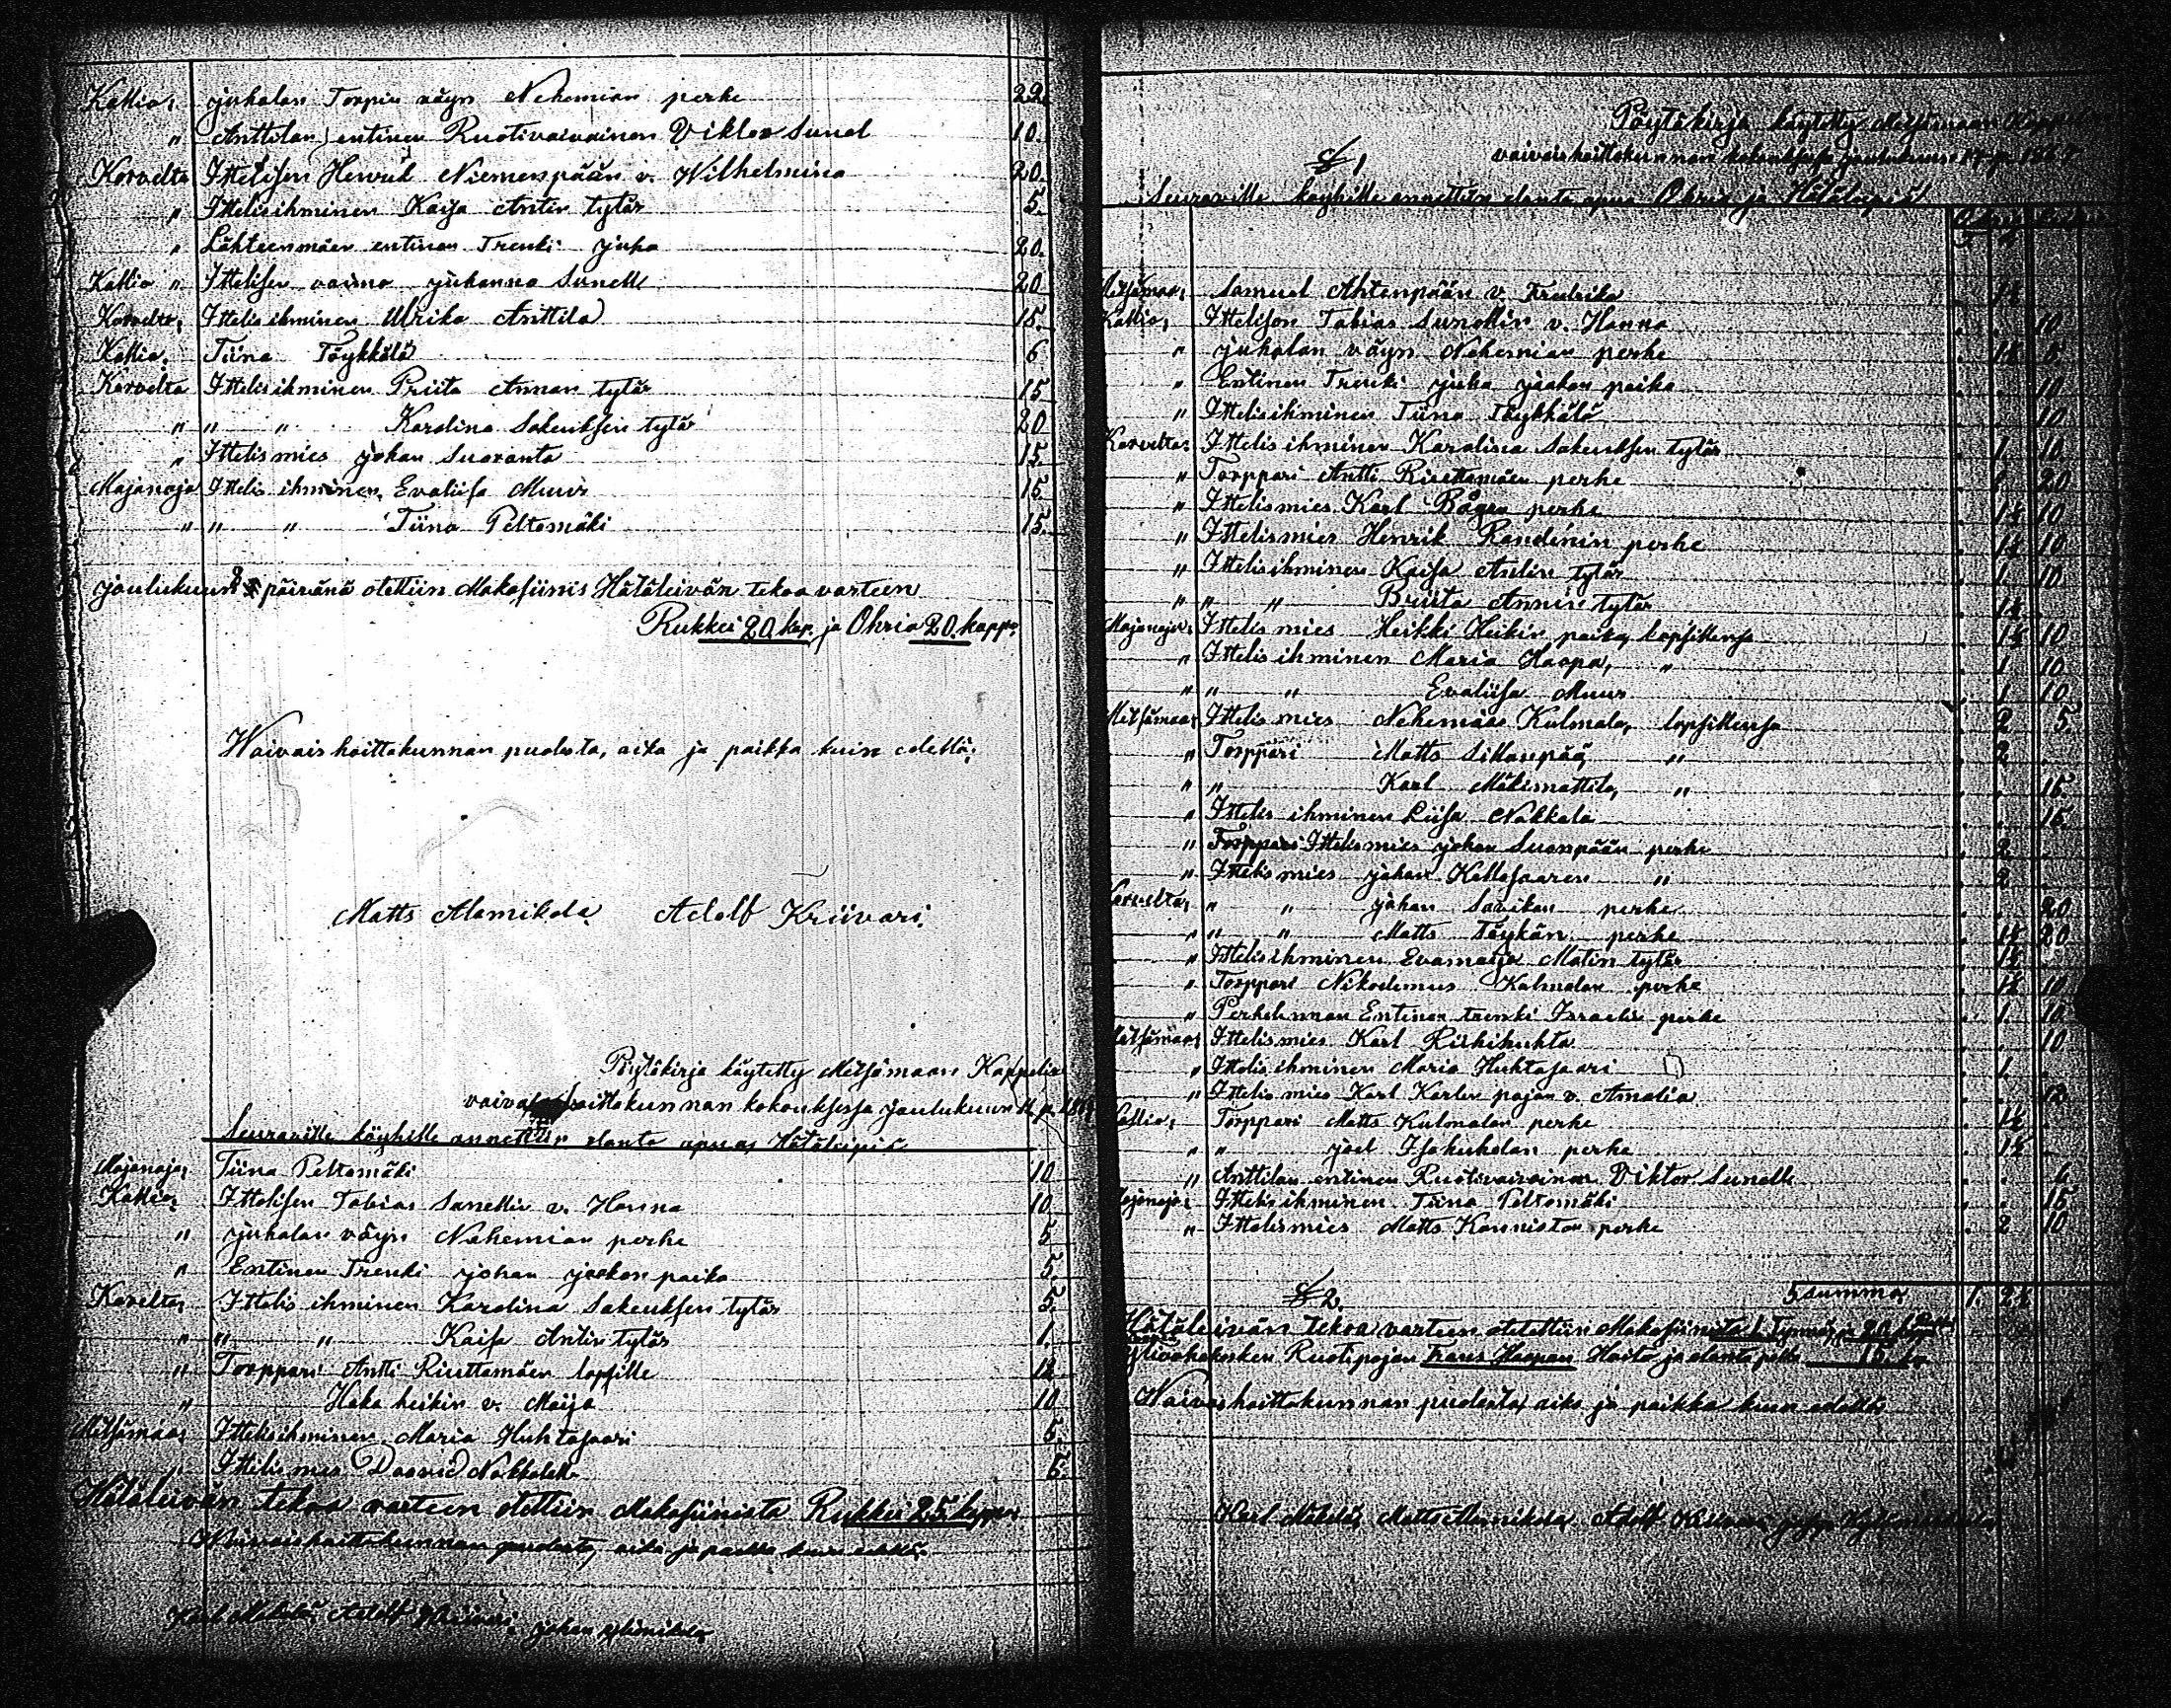 Kallio, juhalan Torpin väyn Nehemian perhe 22.
" Anttilan entinen Ruotivaivainen Viktor Sunel 10.
Korvelta Ittelisen Henrik Niemenpään v. Wilhelmina 20.
" Ittelisihminen Kaisa Antin tytär 5.
" Lähteenmäen entinen Trenki juha 20.
Kallio " Ittelisen vaimo juhanna Sunell 20
Korvelta, Ittelisihminen Ulrika Anttila 15.
Kallio, Tiina Töykkälä 6
Korvelta Ittelisihminen Priita Annan tytär 15
" " " Karolina Sakeuksen tytär 20
" Ittelismies johan Suoranta 15.
Majanoja Ittelis ihminen, Evaliisa Muur 15
" " " Tiina Peltomäki 15.
joulukuun 8 päivänä otettiin Makasiinis Hätäleivän tekoa varteen
Rukkei 20 kap. ja Ohria 20. kapp.
Waivaishoittokunnan puolesta, aika ja paikka kuin edellä;
Matts Alamikola Adolf Kriivari.
Pöytäkirja käytetty Metsämaan Kappelin
hoittokunnan kokouksessa joulukuun 11 p.
Seuraville köyhille annettiin elanto apua, Hätäleipiä
Majanoja, Tiina Peltomäki 10
Kallio, Ittelisen Tobias Sunellin v. Hanna 10
" juhalan väyn Nehemian perhe 5
" Entinen Trenki johan jaakon poika 5.
Korvelta, Ittelis ihminen Karolina Sakeuksen tytär 5.
" " " Kaisa Antin tytär 1.
" Torppari Antti Riuttamäen lapsille 12
" Haka heikin v. Maija 10
Metsämaa, Ittelisihminen Maria Huhtasaari 5.
" Ittelis mies Daavid Nokkala 5.
Hätäleivän tekoa varteen otettiin Makasiinista Rukkei 25 kapp.
Waivaishoittokunnan puolesta, aika ja paikka kuin edellä.
Karl Mäkelä, Adolf Kriivari, johan Ylinikula
Pöytäkirja käytetty Metsämaan
§ 1
vaivaishoittokunnan kokouksessa joulukuun 17 p. 1867
Seuraville köyhille annettiin elanto apua Ohria ja Hätäleipiä
Metsämaa, Samuel Ahtenpään v. Fredrika 1½
Kallio, Ittelisen Tobias Sunellin v. Hanna 10
" juhalan väyn Nehemian perhe 1½ 5
" Entinen Trenki juha jaakon poika 10
" Ittelisihminen Tiina Töykkälä 10
Korvelta, Ittelis ihminen Karolina Sakeuksen tytär 1. 10
" Torppari Antti Riuttamäen perhe 1 20
" Ittelismies Karl Bågen perhe 1½ 10
" Ittelismies Henrik Randenin perhe 1½ 10
" Ittelisihminen Kaisa Antin tytär 1. 10
" " " Briita Annin tytär 1½
Majanoja, Ittelis mies Heikki Heikin poika, lapsillensa 1½ 10
" Ittelis ihminen Maria Haapa, " 1 10
" " " Evaliisa Muur 1 10
Metsämaa, Ittelis mies Nehemias Kulmala, lapsillensa 2 5.
" Torppari Matts Sillanpää, " 2
" " Karl Mäkimattila, " 15.
" Ittelis ihminen Liisa Nokkala 15.
" Torppari Ittelismies johan Suonpään perhe 2
" Ittelis mies johan Kallasaaren " 2
Korvelta, " " johan Savikon perhe 20
" " " Matts Töykän perhe 1½ 20
" Ittelisihminen Evamaija Matin tytär 1½
" Torppari Nikodemus Kulmalan perhe 1½ 10
" Perhelinnan Entinen trenki Israelin perhe 1. 10
Metsämaa, Ittelismies Karl Riihihuhta 10
" Ittelis ihminen Maria Huhtasaari 1
" Ittelis mies Karl Karlin pojan v. Amalia 12
Kallio, Torppari Matts Kulmalan perhe 1½
" " joel Isokuhalan perhe 1½
" Anttilan entinen Ruotivaivainen Viktor Sunell 6
Majanoja, Ittelis ihminen Tiina Peltomäki 15
" Ittelismies Matts Kanniston perhe 2 10
§ 2.
summa 1. 2½
Hätäleivän tekoa varteen otetettiin Makasiinista 1 Tynnöri ja 20 kapp
Ruotipojan Frans Haapan Hoito ja elanto 15
Waivaishoittokunnan puolesta, aika ja paikka kuin edellä
Karl Mäkelä, Matts Alamikola, Adolf Kriivari